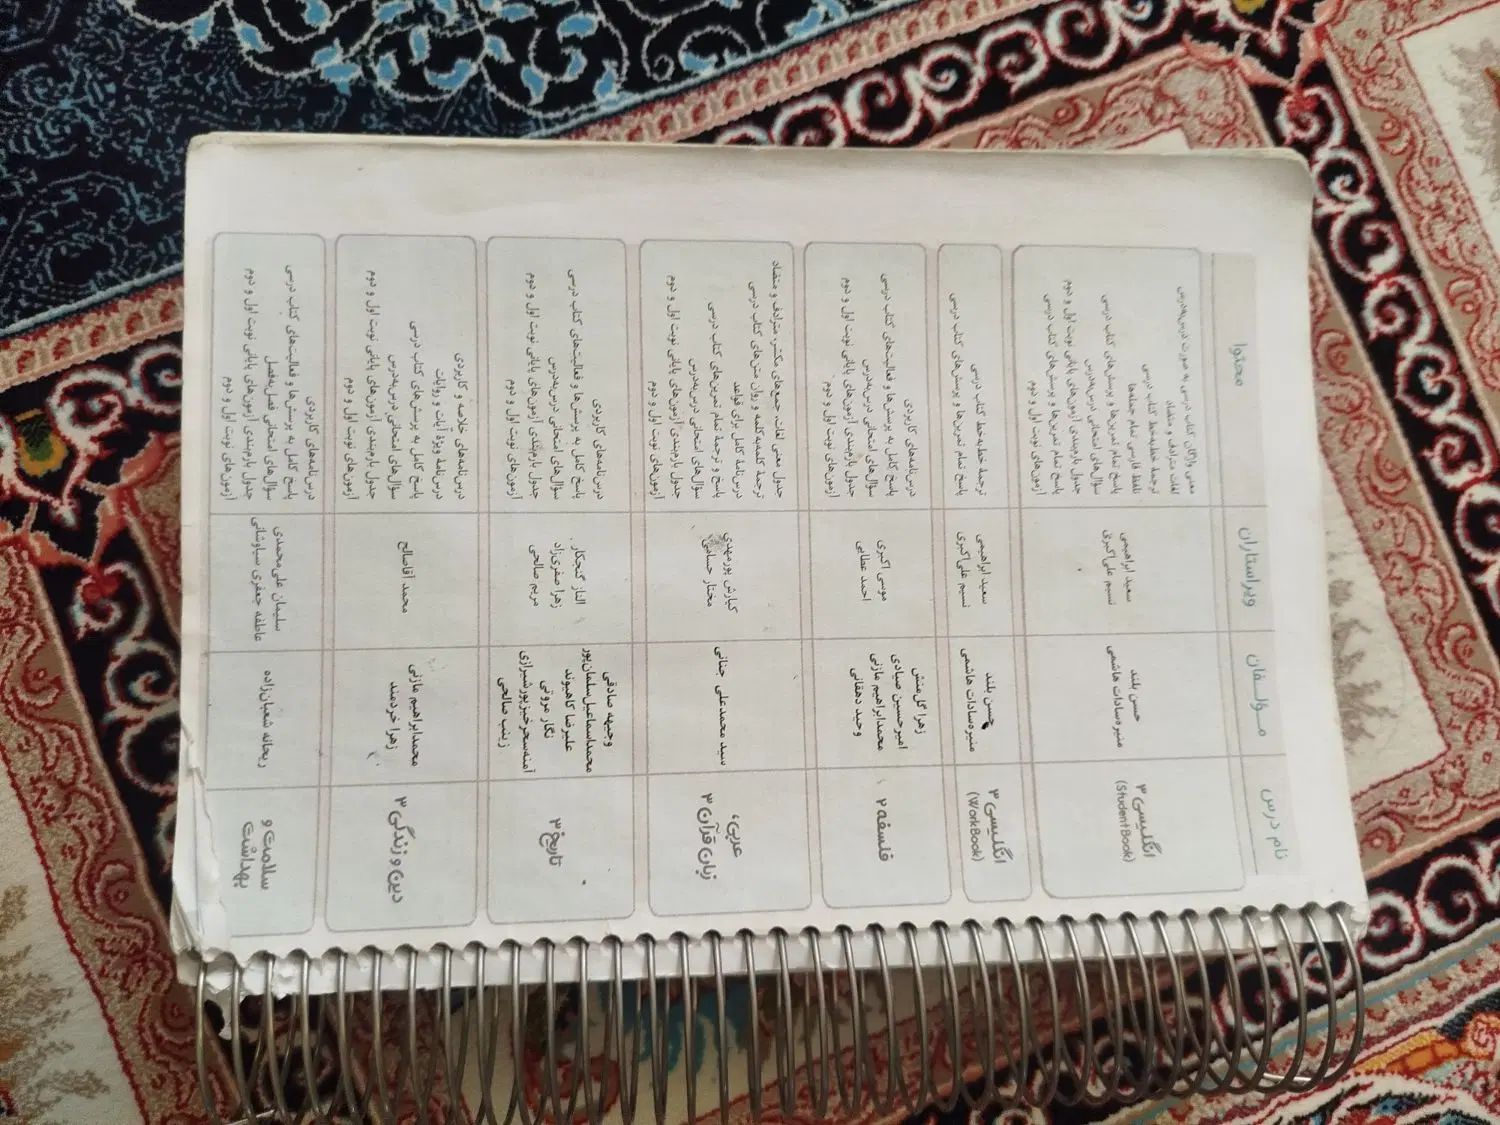 نام درس
مؤلفان
ویراستاران
محتوا
انگلیسی ۳
(Student Book)
حسن بلند
منیره‌سادات هاشمی
سعید ابراهیمی
نسیم علی‌اکبری
معنی واژگان کتاب درسی به صورت درس‌به‌درس
لغات مترادف و متضاد
ترجمهٔ خط‌به‌خط کتاب درسی
تلفظ فارسی تمام جمله‌ها
پاسخ تمام تمرین‌ها و پرسش‌های کتاب درسی
سؤال‌های امتحانی درس‌به‌درس
جدول بارم‌بندی آزمون‌های پایانی نوبت اول و دوم
پاسخ تمام تمرین‌ها و پرسش‌های کتاب درسی
آزمون‌های نوبت اول و دوم
انگلیسی ۳
(Work Book)
حسن بلند
منیره‌سادات هاشمی
سعید ابراهیمی
نسیم علی‌اکبری
ترجمهٔ خط‌به‌خط کتاب درسی
پاسخ تمام تمرین‌ها و پرسش‌های کتاب درسی
فلسفه ۲
زهرا گل‌منش
امیرحسین صیادی
محمدابراهیم مازنی
وحید دهقانی
موسی اکبری
احمد عطایی
درس‌نامه‌های کاربردی
پاسخ کامل به پرسش‌ها و فعالیت‌های کتاب درسی
سؤال‌های امتحانی درس‌به‌درس
جدول بارم‌بندی آزمون‌های پایانی نوبت اول و دوم
آزمون‌های نوبت اول و دوم
عربی،
زبان قرآن ۳
سید محمدعلی جنانی
کیارش پورمهدی
مختار حسامی
جدول معنی لغات، جمع‌های مکسر، مترادف و متضاد
ترجمهٔ کلمه‌به‌کلمه و روان متن‌های کتاب درسی
درس‌نامهٔ کامل برای قواعد
پاسخ و ترجمهٔ تمام تمرین‌های کتاب درسی
سؤال‌های امتحانی درس‌به‌درس
جدول بارم‌بندی آزمون‌های پایانی نوبت اول و دوم
آزمون‌های نوبت اول و دوم
تاریخ ۳
وجیهه صادقی
محمداسماعیل سلمان‌پور
علیرضا کاهیوند
نگار مروتی
آمنه‌سحر خیرپورشیرازی
زینب صالحی
الناز گنجکار
زهرا صفری‌زاد
مریم صالحی
درس‌نامه‌های کاربردی
پاسخ کامل به پرسش‌ها و فعالیت‌های کتاب درسی
سؤال‌های امتحانی درس‌به‌درس
جدول بارم‌بندی آزمون‌های پایانی نوبت اول و دوم
آزمون‌های نوبت اول و دوم
دین و زندگی ۳
محمدابراهیم مازنی
زهرا خردمند
محمد آقاصالح
درس‌نامه‌های خلاصه و کاربردی
درس‌نامه ویژهٔ آیات و روایات
پاسخ کامل به پرسش‌های کتاب درسی
سؤال‌های امتحانی درس‌به‌درس
جدول بارم‌بندی آزمون‌های پایانی نوبت اول و دوم
آزمون‌های نوبت اول و دوم
سلامت و
بهداشت
ریحانه شعبان‌زاده
سلیمان علی‌محمدی
عاطفه جعفری سیاوشانی
درس‌نامه‌های کاربردی
پاسخ کامل به پرسش‌ها و فعالیت‌های کتاب درسی
سؤال‌های امتحانی فصل‌به‌فصل
جدول بارم‌بندی آزمون‌های پایانی نوبت اول و دوم
آزمون‌های نوبت اول و دوم